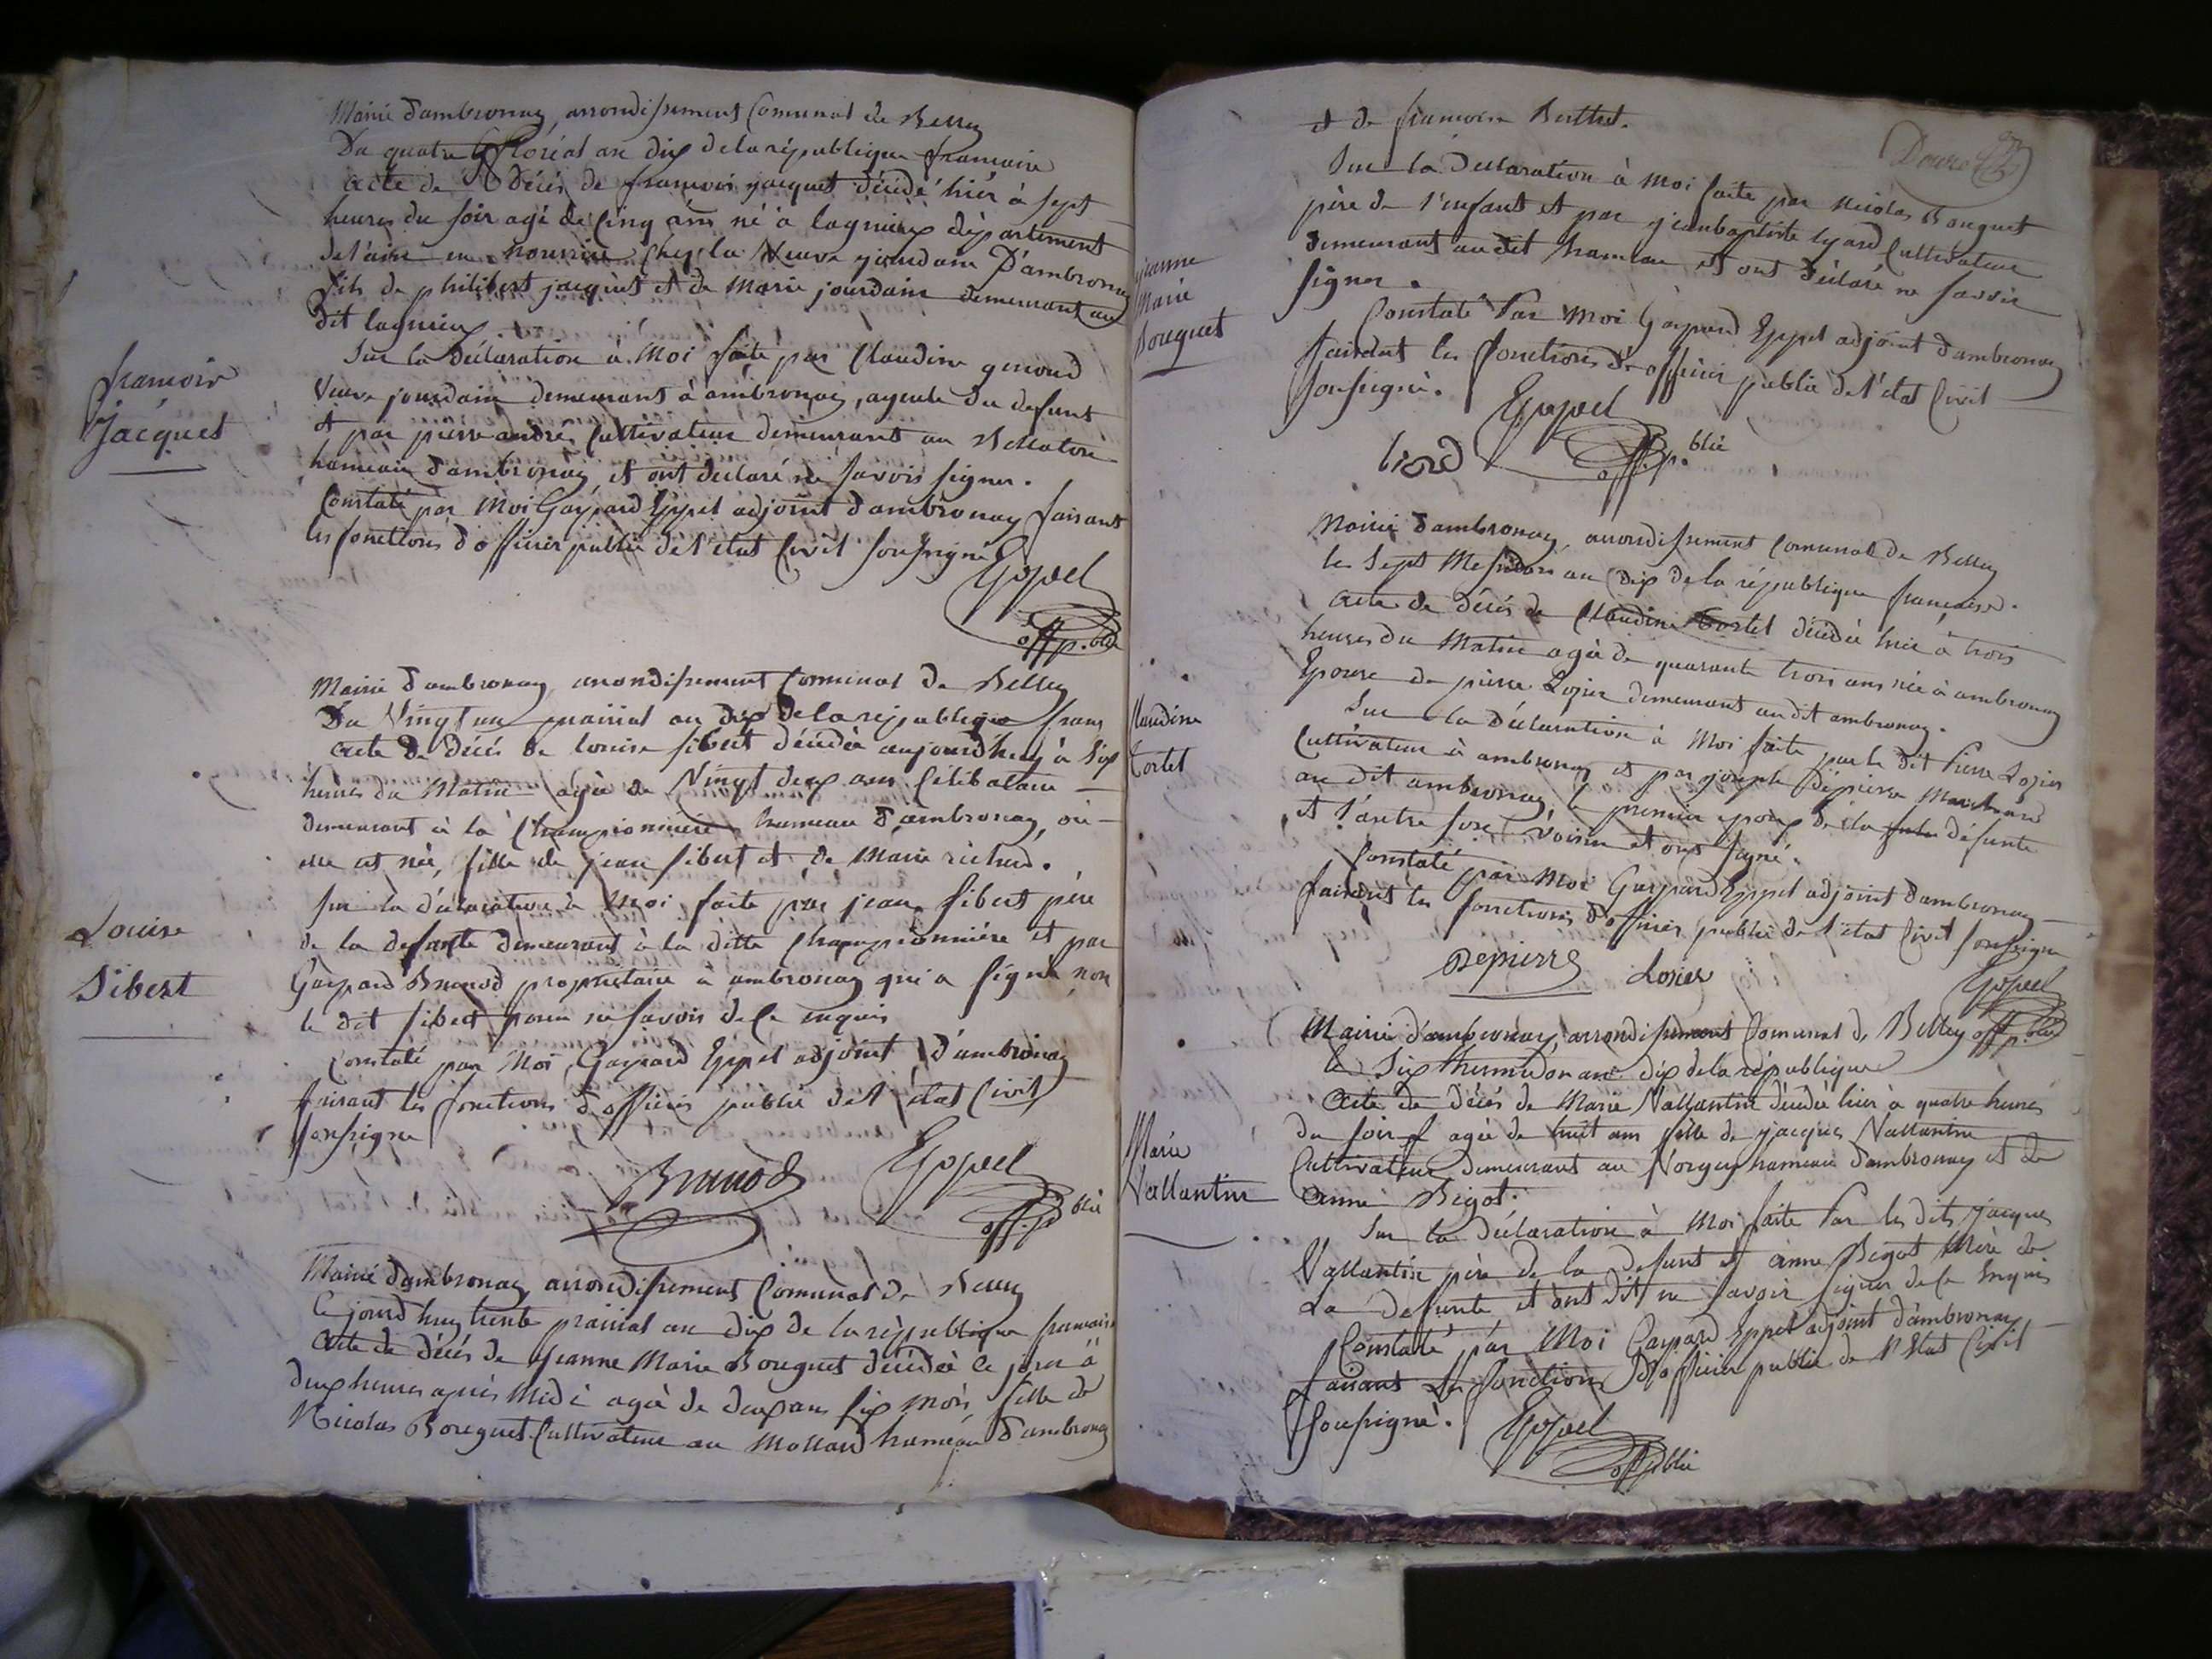 françois
Jacquet
Mairie d'ambronay, arrondissement Comunal de Belley
Du quatre floréal an dix de la république francaise
Acte de Décés de françois jacquet décédé hièr à sept
heures du soir agé de Cinq ans né à lagnieux département
de l'ain en nourrice chez la Veuve jourdain D'ambronay
fils de philibert jacquet et de Marie jourdain demeurant au
dit lagnieux.
Sur la déclaration à Moi faite par Claudine genoud
Veuve jourdain demeurant à ambronay, ayeule du defunt
et par pierre andré Cultivateur demeurant au
hameau d'ambronay, et ont declaré ne savoir signer.
Constaté par Moi Gaspard Eppel adjoint d'ambronay faisant
les fonctions d'officier public de l'etat Civil soussigné
Eppel
off. p. blic
Louise
Sibert
Mairie d'ambronay arrondissement Communal de Belley
Du Vingt un prairial an dix de la république franç
Acte de décés de Louise sibert décédée aujourd'huy à six
heures du Matin agée de Vingt deux ans Célibataire
demeurant à la Championnière hameau d'ambronay, où
elle est née, fille de jean sibert et de Marie richard.
Sur la déclaration à Moi faite par jean sibert père
de la defunte demeurant à la ditte Championnière et par
Gaspard Brunod propriétaire à ambronay qui a signé non
le dit sibert pour ne savoir de ce enquis
Constaté par Moi Gaspard Eppel adjoint d'ambronay
faisant les fonctions d'officier public de l'etat Civil
soussigné
Brunod Eppel
off. p. blic
Mairie d'ambronay arrondissement Comunal de Belley
Ce jourd'huy trente prairial an dix de la république francaise
Acte de décés de Jeanne Marie Bouguet décédée ce jour à
deux heures après Midi agée de deux ans six mois fille de
Nicolas Bouguet Cultivateur au Mollard hameau d'ambronay
Jeanne
Marie
Bouguet
et de francoise Berthet.
Sur la Déclaration à Moi faite par Nicolas Bouguet
père de l'enfant et par jeanbaptiste Cultivateur
demeurant au dit hameau et ont déclaré ne savoir
signer.
Constaté Par Moi Gaspard Eppel adjoint d'ambronay
faisant les fonctions d'officier public de l'etat Civil
soussigné.
Eppel
off. p. blic
Claudine
Tortel
Mairie d'ambronay, arrondissement Comunal de Belley
le Sept Messidor an dix de la république française.
Acte de décés de Claudine Tortel décédée hier à trois
heures du Matin agée de quarante trois ans née à ambronay
Epouse de pierre Lozier demeurant au dit ambronay.
Sur la Déclaration à Moi faite par le dit Pierre Lozier
Cultivateur à ambronay et par joseph Depierre Marchand
au dit ambronay, le premier epoux de la défunte
et l'autre son Voisin et ont signé.
Constaté par Moi Gaspard Eppel adjoint d'ambronay
faisant les fonctions d'officier public de l'etat Civil soussigné
Depierre Losier Eppel
off. p. blic
Marie
Vallantin
Mairie d'ambronay, arrondissement Comunal de Belley
le Six thermidor an dix de la république
Acte de décés de Marie Vallantin décédée hier à quatre heures
du soir agée de huit ans fille de jacques Vallantin
Cultivateur demeurant au hameau d'ambronay et de
anne Bigot.
Sur la déclaration à Moi faite Par les dits jacques
Vallantin père de la defunt et anne Bigot Mère de
La defunte et ont dit ne savoir signer de ce enquis
Constaté par Moi Gaspard Eppel adjoint d'ambronay
faisant les fonctions D'officier public de l'Etat Civil
soussigné.
Eppel
off. p. blic